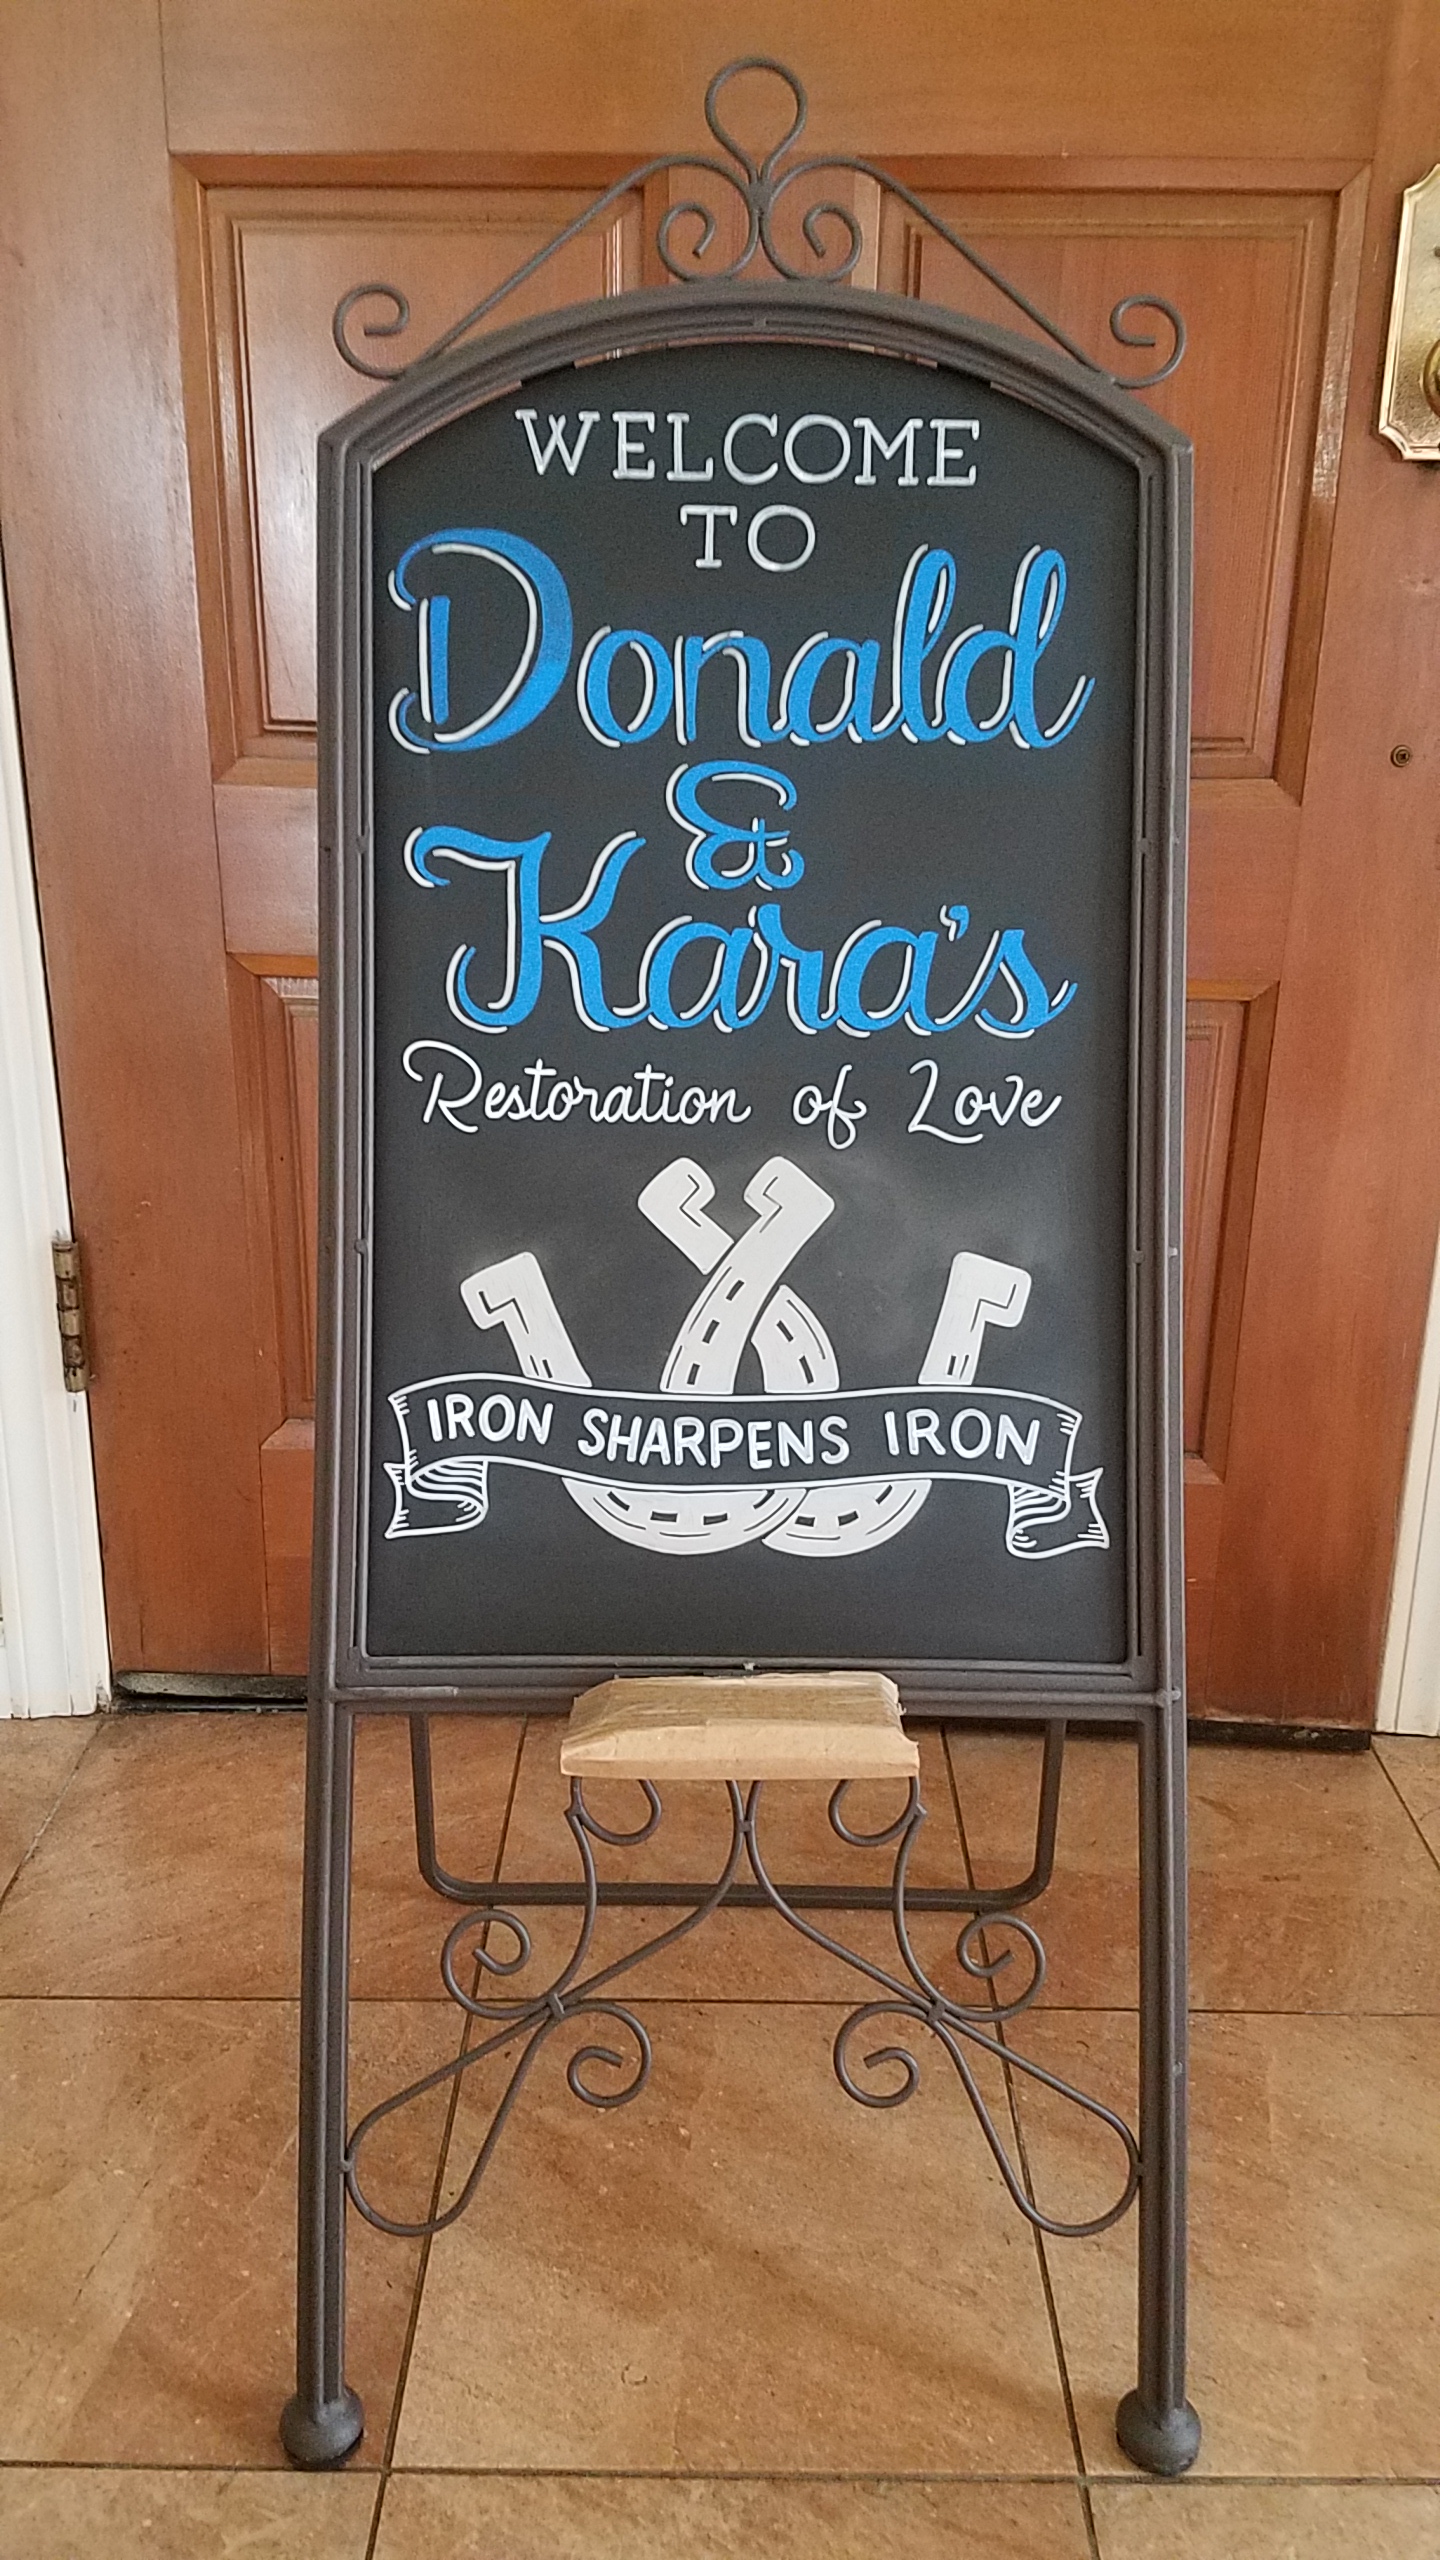 WELCOME
TO
Donald
&
Kara's
Restoration of Love
IRON SHARPENS IRON